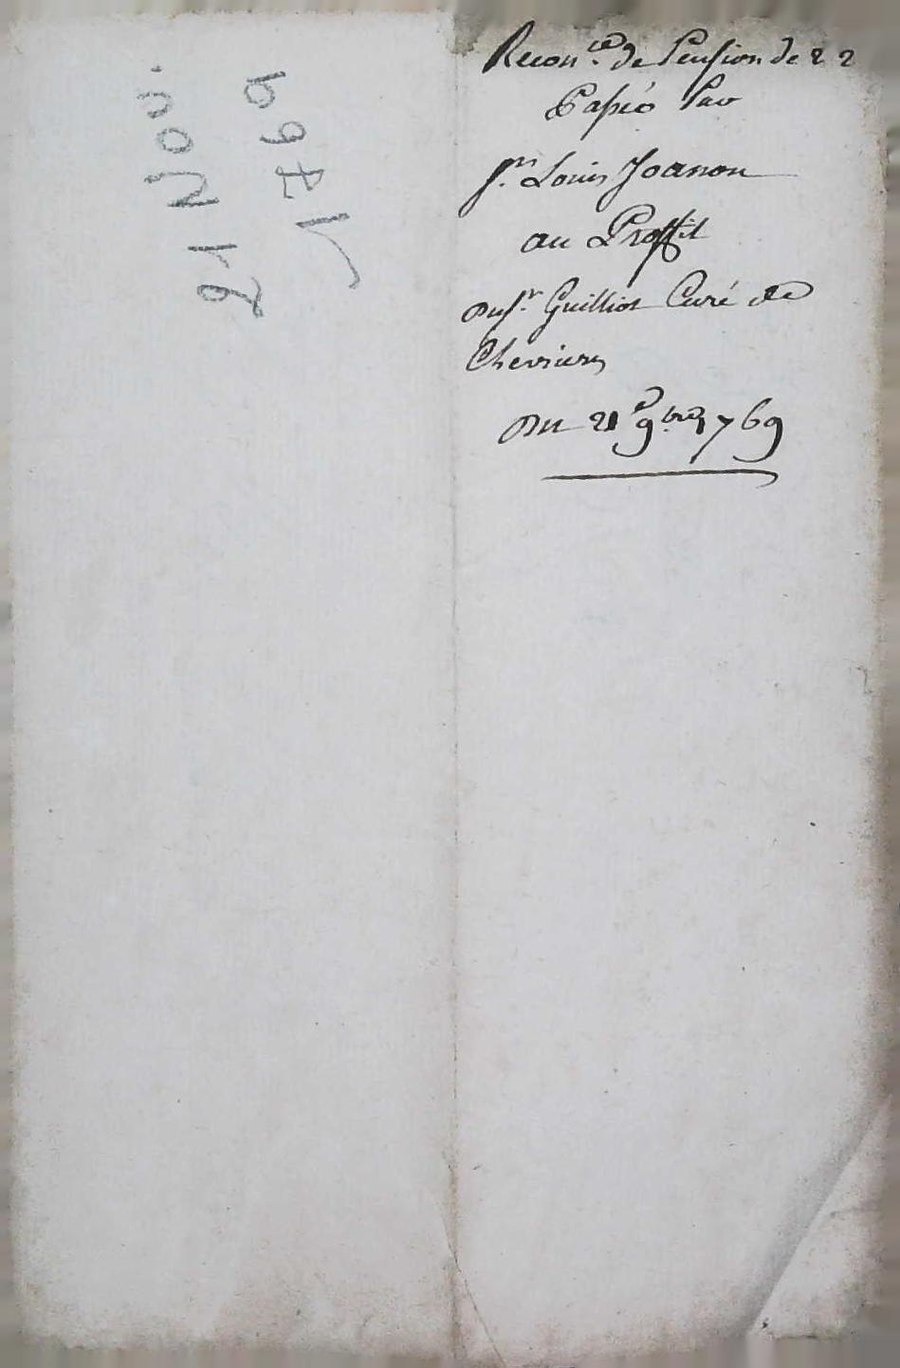 21 Nov.
1769
Recon.ce de Pension de 22
Passée Par
Sr. Louis Joanon
au Proffit
du Sr. Guilliot Curé de
Chevrieres
Du 21e 9bre 1769